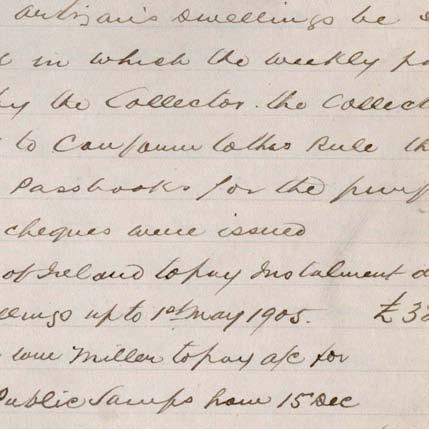 artizan's dwellings be
in which the weekly
by the Collector. the Collect
to Conform to this Rule th
Passbooks for the purp
cheques were issued
of Ireland to pay Instalment
lings up to 1st May 1905. £32
Miller to pay a/c for
Public Lamps from 15 Dec